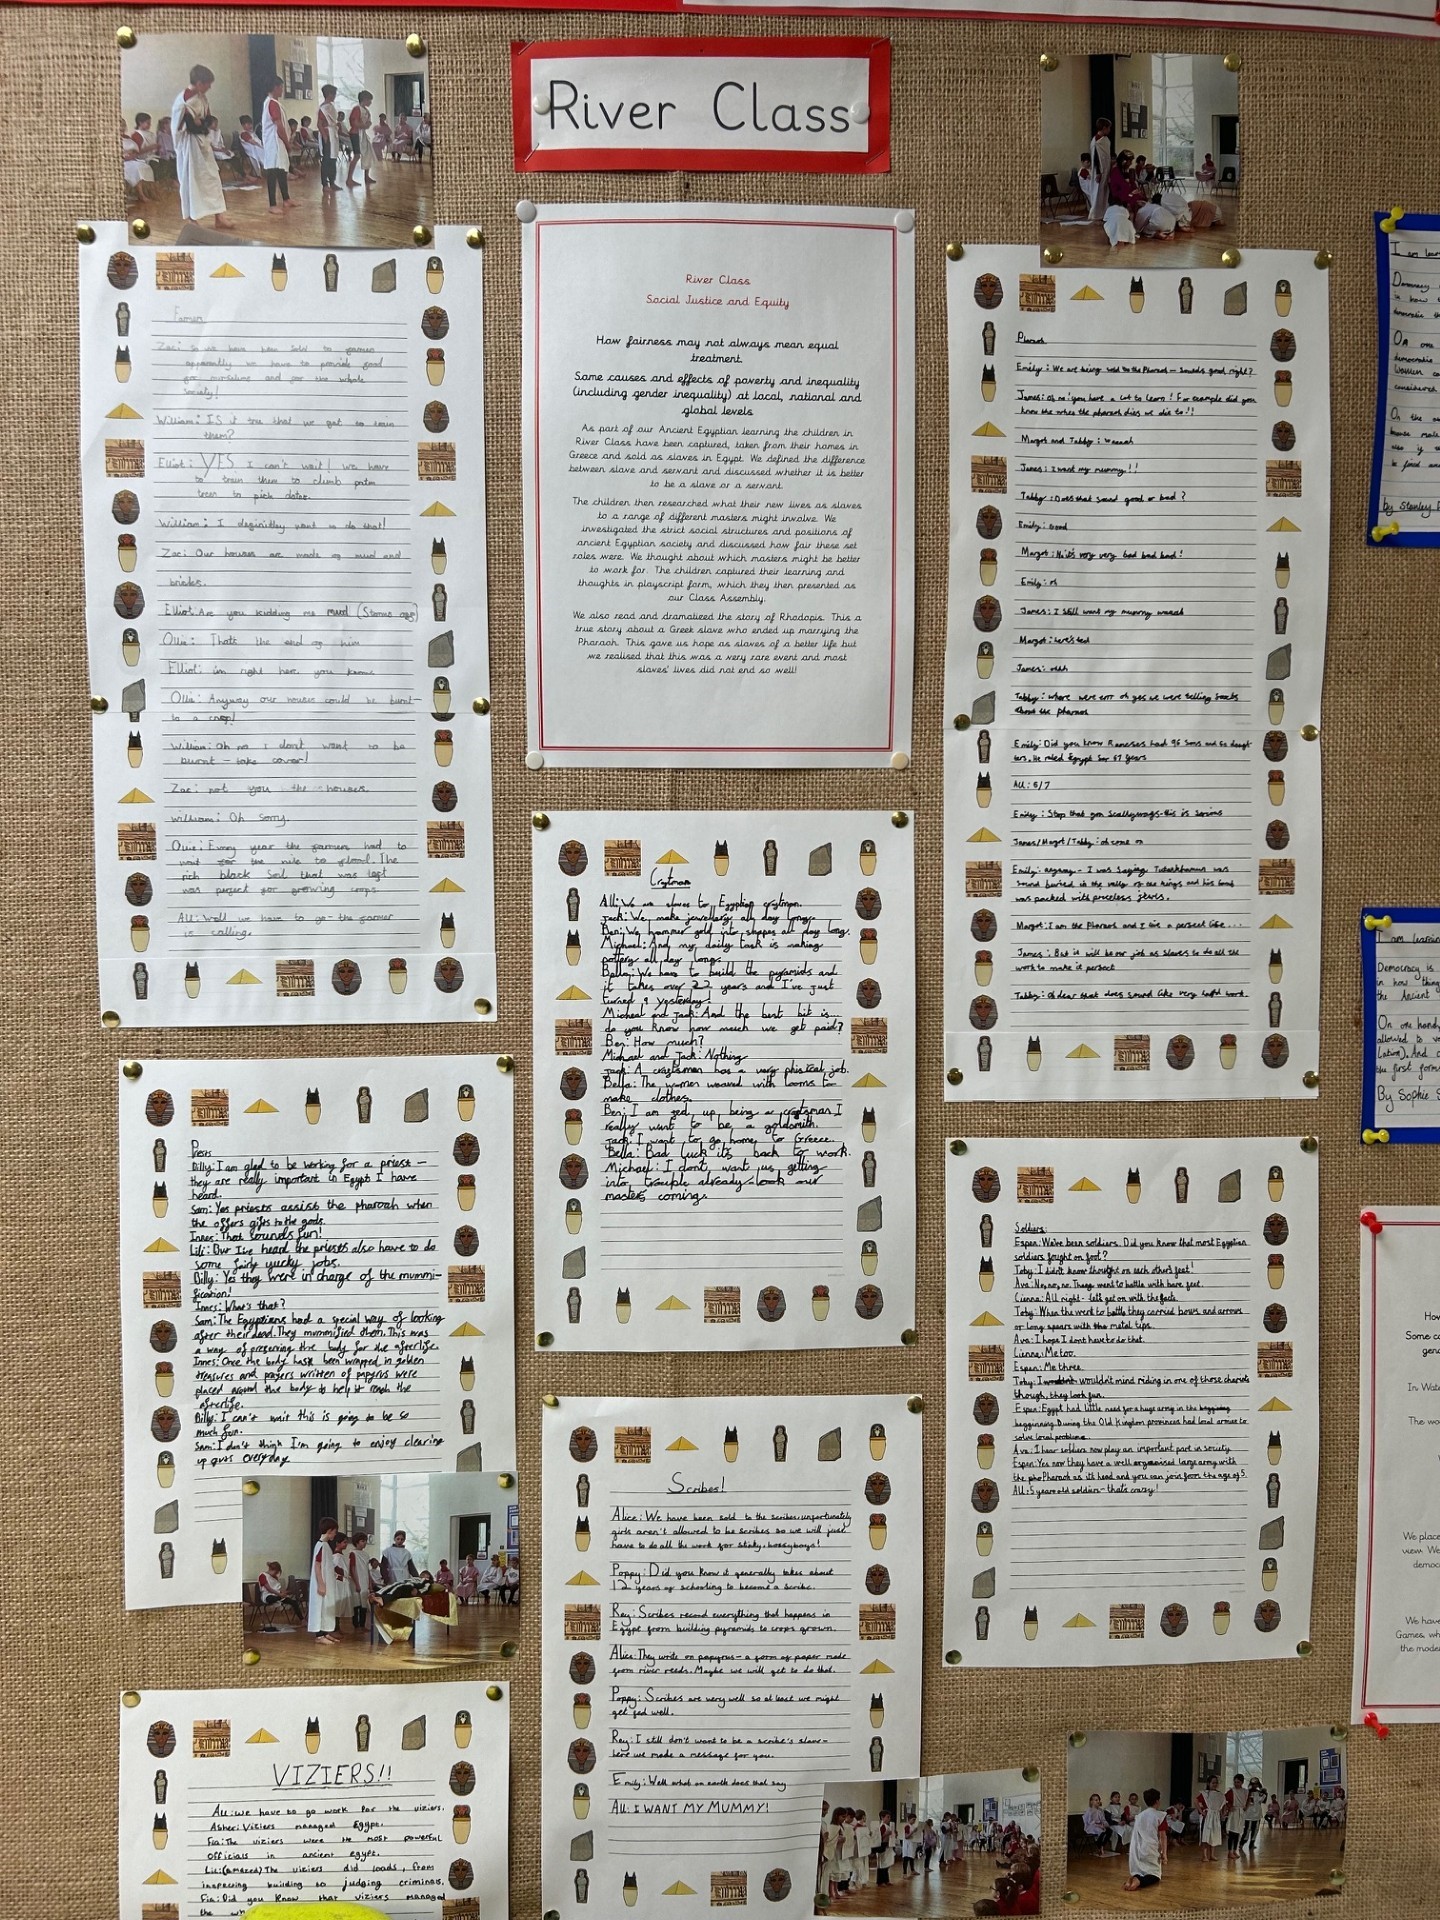 River Class
River Class
Social Justice and Equity
How fairness may not always mean equal
treatment.
Some causes and effects of poverty and inequality
(including gender inequality) at local, national and
global levels
As part of our Ancient Egyptian learning the children in
River Class have been captured, taken from their homes in
Greece and sold as slaves in Egypt. We defined the difference
between slave and servant and discussed whether it is better
to be a slave or a servant.
The children then researched what their new lives as slaves
to a range of different masters might involve. We
investigated the strict social structures and positions of
ancient Egyptian society and discussed how fair these set
roles were. We thought about which masters might be better
to work for. The children captured their learning and
thoughts in playscript form, which they then presented as
our Class Assembly.
We also read and dramatized the story of Rhodopis. This a
true story about a Greek slave who ended up marrying the
Pharaoh. This gave us hope as slaves of a better life but
we realised that this was a very rare event and most
slaves' lives did not end so well!
Zac: so we have been sold to farmers
apparently we have to provide food
for ourselves and for the whole
society!
William: IS it true that we get to train
them?
Elliot: YES I can't wait! we have
to train them to climb palm
trees to pick dates.
William: I definitley want to do that!
Zac: Our houses are made of mud and
bricks.
Elliot: Are you kidding me mud (Storms off)
Ollie: Thats the end of him
Elliot: im right here you know
Ollie: Anyway our houses could be burnt
to a crisp!
William: Oh no I dont want to be
burnt - take cover!
Zac: not you the houses.
William: Oh sorry.
Ollie: Every year the farmers had to
wait for the nile to flood. The
rich black soil that was left
was perfect for growing crops.
All: Well we have to go - the farmer
is calling.
Priests
Billy: I am glad to be working for a priest -
they are really important in Egypt I have
heard.
Sam: Yes priests assist the pharoah when
the offers gifts to the gods.
Innes: That sounds fun!
Lili: Our I've heard the priests also have to do
some fairly yucky jobs.
Billy: Yes they were in charge of the mummi-
fication!
Innes: What's that?
Sam: The Egyptians had a special way of looking
after their dead. They mummified them. This was
a way of preserving the body for the afterlife.
Innes: Once the body hast been wrapped in golden
treasures and prayers written of papyrus were
placed around the body to help it reach the
afterlife.
Billy: I can't wait this is going to be so
much fun.
Sam: I don't thigh I'm going to enjoy clearing
up guts everyday
VIZIERS!!
All: we have to go work for the viziers.
Asher: Viziers managed Egypt.
Fia: The viziers were the most powerful
officials in ancient egypt.
Lili: (amazed) The viziers did loads, from
inspecting building to judging criminals.
Fia: Did you know that viziers managed
Craftman
All: We are slaves to Egyptian craftman.
Jack: We make jewellery all day long.
Ben: We hammer gold into shapes all day long.
Michael: And my daily task is making
pottery all day long.
Bella: We have to build the pyramids and
it takes over 22 years and I've just
turned 9 yesterday!
Micheal and Jack: And the best bit is...
do you know how much we get paid?
Ben: How much?
Michael and Jack: Nothing
Jack: A craftsman has a very phisical job.
Bella: The women weaved with looms to
make clothes.
Ben: I am fed up being a craftsman I
really want to be a goldsmith.
Jack: I want to go home to Greece.
Bella: Bad luck its back to work.
Michael: I dont want us getting
into trouble already - look our
masters coming.
Scribes!
Alice: We have been sold to the scribes, unfortunately
girls aren't allowed to be scribes so we will just
have to do all the work for stinky, bossy boys!
Poppy: Did you know it generally takes about
12 years of schooling to become a scribe.
Rey: Scribes record everything that happens in
Egypt from building pyramids to crops grown.
Alice: They write on papyrus - a form of paper made
from river reeds. Maybe we will get to do that.
Poppy: Scribes are very well so at least we might
get fed well.
Rey: I still don't want to be a scribe's slave -
here we made a message for you.
Emily: Well what on earth does that say
All: I WANT MY MUMMY!
Pharaoh
Emily: We are being sold to the Pharaoh - sounds good right?
James: oh no! you have a lot to learn! For example did you
know the when the pharaoh dies we die to!!
Margot and Tabby: waaaah
James: I want my mummy!!
Tabby: Does that sound good or bad?
Emily: Good
Margot: No it's very very bad bad bad!
Emily: oh
James: I still want my mummy waaah
Margot: here's ted
James: ohhh
Tabby: where were err oh yes we were telling facts
about the pharaoh
Emily: Did you know Rameses had 96 sons and 60 daugh-
ters. He ruled Egypt for 67 years
All: 6/7
Emily: Stop that you scallywags - this is serious
James/Margot/Tabby: oh come on
Emily: anyway - I was saying Tutankhamun was
found buried in the valley of the kings and his tomb
was packed with priceless jewels.
Margot: I am the Pharaoh and I live a perfect life...
James: But it will be our job as slaves to do all the
work to make it perfect
Tabby: Oh dear that does sound like very hard work.
Soldiers
Espen: We've been soldiers. Did you know that most Egyptian
soldiers fought on foot?
Toby: I didn't know thought on each others feet!
Ava: No, no, no. They went to battle with bare feet.
Lienna: All right - let's get on with the facts.
Toby: When the went to battle they carried bows and arrows
or long spears with the metal tips.
Ava: I hope I dont have to do that.
Lienna: Me too.
Espen: Me three.
Toby: I wouldn't mind riding in one of those chariots
though, they look fun.
Espen: Egypt had little need for a huge army in the
beggining. During the Old Kingdom provinces had local armies to
solve local problems.
Ava: I hear soldiers now play an important part in society
Espen: Yes now they have a well organised large army with
the Pharaoh as it's head and you can join from the age of 5.
All: 5 years old soldiers - that's crazy!
I am lear
Democracy
in how t
democratic
On one
democratic
Women
considered
by Stanley
I am learnin
Democracy is
in how thing
the Ancient
On one hand
allowed to v
the first form
By Sophie S
Ho
Some ca
gend
In Wate
The wo
We place
view. We
democ
We have
Games, wh
the mode